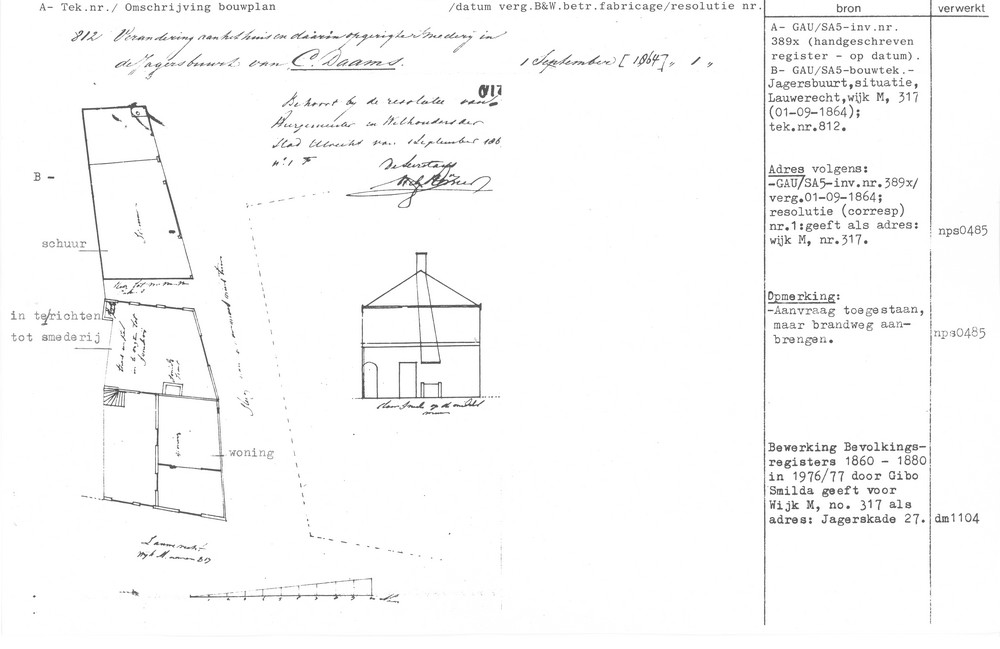 A- Tek.nr./ Omschrijving bouwplan /datum verg.B&W.betr.fabricage/resolutie nr. bron verwerkt
812 Verandering aan het huis en daarin opgerigte smederij in
de Jagersbuurt van C. Daams. 1 September [1864] „ 1 „
Behoort bij de resolutie van
Burgemeester en Wethouders der
Stad Utrecht van 1 September 186
n° 1 F
De Secretaris
B -
schuur
in te richten
tot smederij
woning
Lauwerecht
Wijk M. nummer 317
A- GAU/SA5-inv.nr.
389x (handgeschreven
register - op datum).
B- GAU/SA5-bouwtek.-
Jagersbuurt,situatie,
Lauwerecht,wijk M, 317
(01-09-1864);
tek.nr.812.
Adres volgens:
-GAU/SA5-inv.nr.389x/
verg.01-09-1864;
resolutie (corresp)
nr.1:geeft als adres:
wijk M, nr.317.
nps0485
Opmerking:
-Aanvraag toegestaan,
maar brandweg aan-
brengen.
nps0485
Bewerking Bevolkings-
registers 1860 - 1880
in 1976/77 door Gibo
Smilda geeft voor
Wijk M, no. 317 als
adres: Jagerskade 27.
dm1104